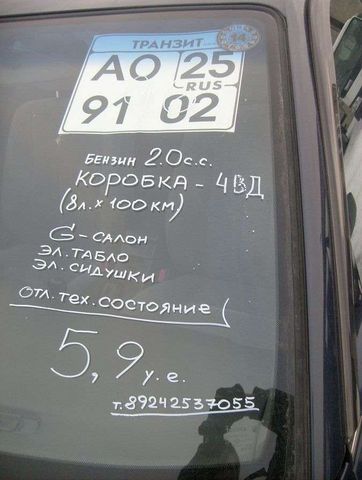 14
ТРАНЗИТ
АО 25
RUS
91 02
БЕНЗИН 2.0 с.с.
КОРОБКА - 4ВД
(8л. х 100 КМ)
G-САЛОН
ЭЛ. ТАБЛО
ЭЛ. СИДУШКИ
ОТЛ. ТЕХ. СОСТОЯНИЕ
5,9 у.е.
т. 89242537055